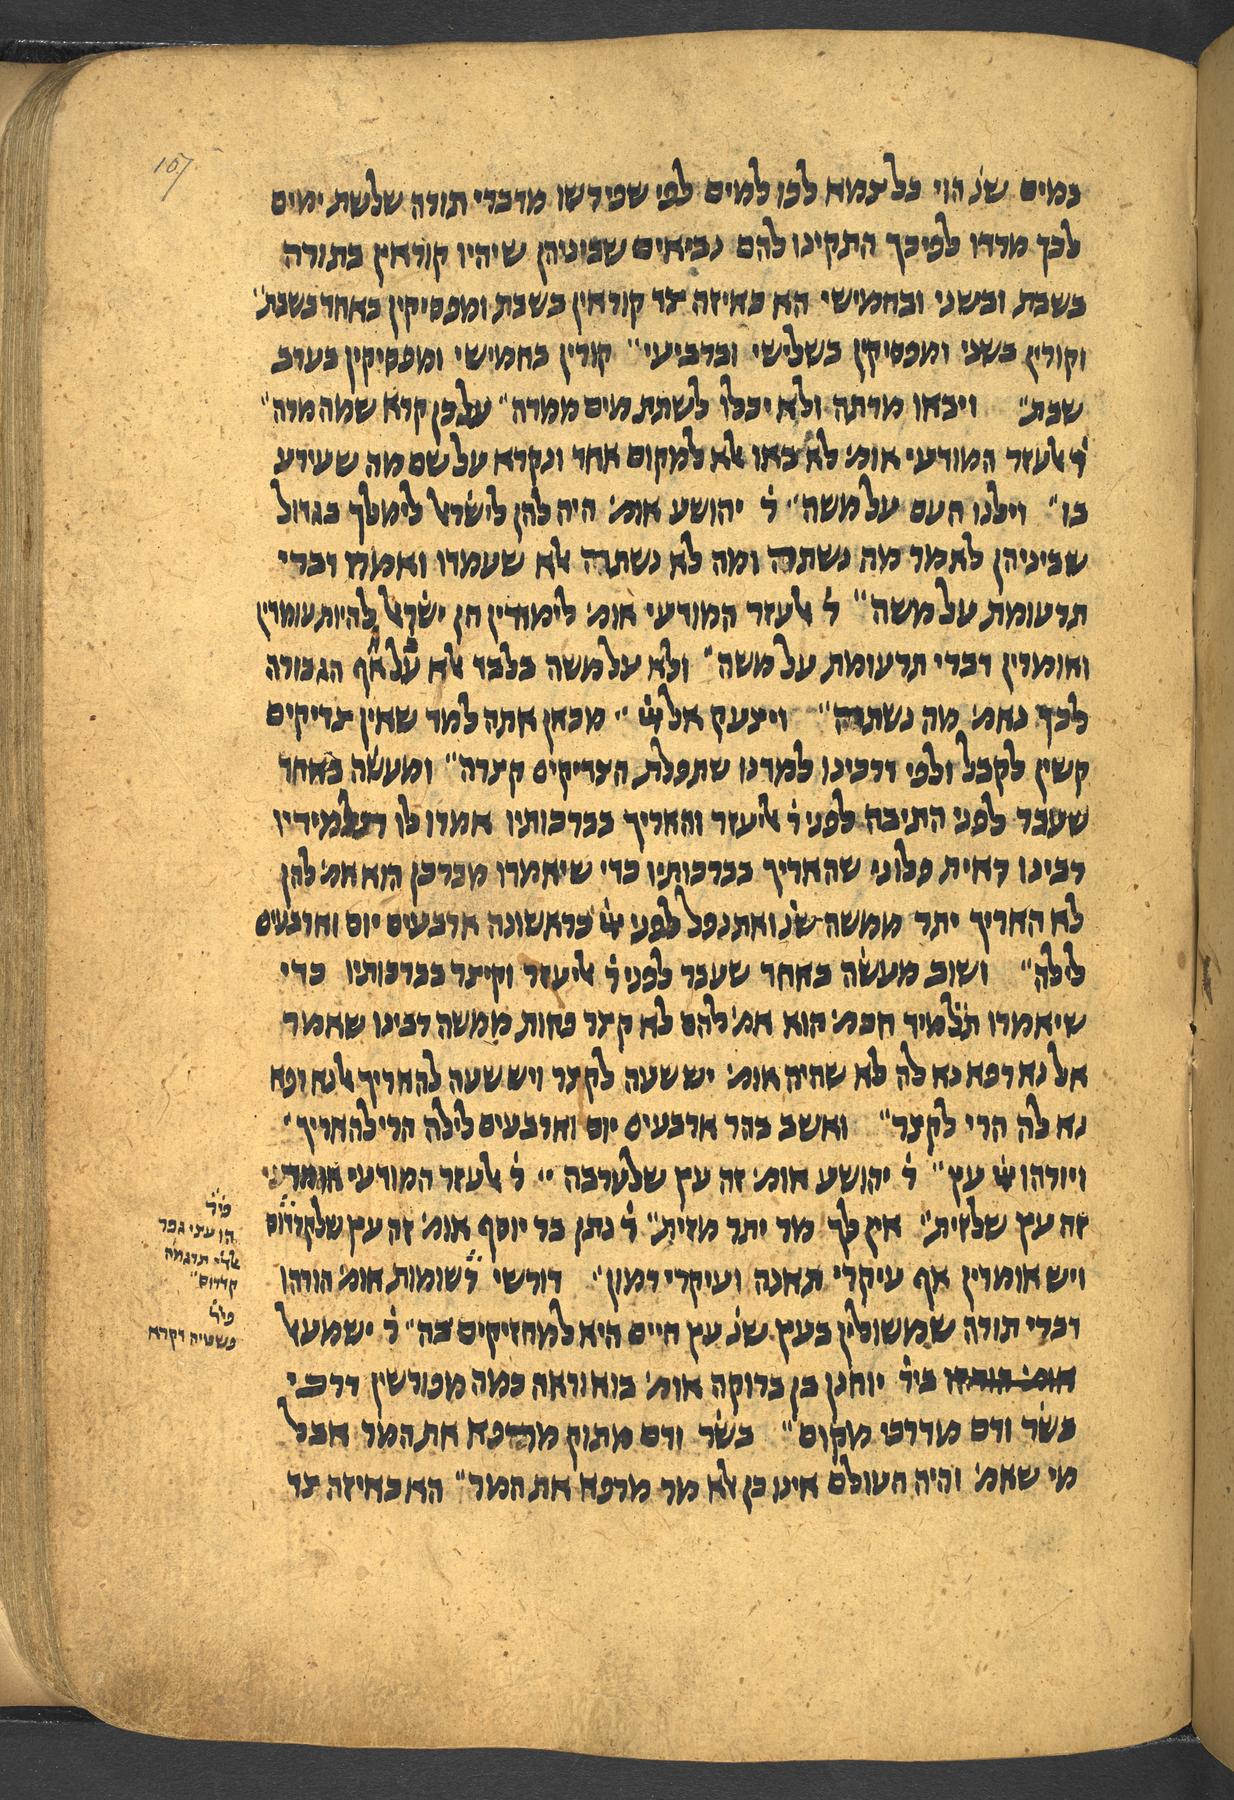 107
כמים שנ׳ הוי כל צמא לכו למים לפי שפירשו מדברי תורה שלשת ימים
לכך מרדו לפיכך התקינו להם נביאים שביניהן שיהיו קוראין בתורה
בשבת ובשני ובחמישי הא באיזה צד קוראין בשבת ומפסיקין באחד בשבת״
וקורין בשני ומפסיקין בשלישי וברביעי״ קורין בחמישי ומפסיקין בערב
שבת״ ויבאו מרתה ולא יכלו לשתת מים ממרה״ על כן קרא שמה מרה״
ר׳ אלעזר המודעי אומ׳ לא באו אלא למקום אחד ונקרא על שם מה שאירע
בו״ וילנו העם על משה״ ר׳ יהושע אומ׳ היה להן לישראל לימלך בגדול
שביניהן לאמר מה נשתה ומה לא נשתה אלא שעמדו ואמרו דברי
תרעומת על משה״ ר׳ אלעזר המודעי אומ׳ לימודין הן ישראל להיות עומדין
ואומרין דברי תרעומת על משה״ ולא על משה בלבד אלא אף על הגבורה
לכך נאמ׳ מה נשתה״ ויצעק אל ״ מכאן אתה למד שאין צדיקים
קשין לקבל ולפי דרכינו למדנו שתפלת הצדיקים קצרה״ ומעשה באחד
שעבר לפני התיבה לפני ר׳ אליעזר והאריך בברכותיו אמרו לו תלמידיו
רבינו ראית פלוני שהאריך בברכותיו כדי שיאמרו מברכן הוא אמ׳ להן
לא האריך יתר ממשה שנ׳ ואתנפל לפני כראשונה ארבעים יום וארבעים
לילה״ ושוב מעשה באחד שעבר לפני ר׳ אליעזר וקיצר בברכותיו כדי
שיאמרו תלמיד חכמ׳ הוא אמ׳ להם לא קיצר פחות ממשה רבינו שאמר
אל נא רפא נא לה לא שהיה אומ׳ יש שעה לקצר ויש שעה להאריך אל נא רפא
נא לה הרי לקצר״ ואשב בהר ארבעים יום וארבעים לילה הרי להאריך׳
ויורהו עץ״ ר׳ יהושע אומ׳ זה עץ שלערבה״ ר׳ אלעזר המודעי
זה עץ שלזית״ אין לך מר יתר מזית״ ר׳ נתן בר יוסף אומ׳ זה עץ שלקדרוס
ויש אומרין אף עיקרי תאנה ועיקרי רמון״ דורשי רשומות אומ׳ הורהו
דברי תורה שמשולין בעץ שנ׳ עץ חיים היא למחזיקים בה״ ר׳ ישמעאל
ביר׳ יוחנן בן ברוקה אומ׳ בוא וראה כמה מפורשין דרכי
בשר ודם מדרכי מקום״ בשר ודם מתוק מרפא את המר אבל
מי שאמ׳ והיה העולם אינו כן אלא מר מרפא את המר״ הא באיזה צד
קדרוס״